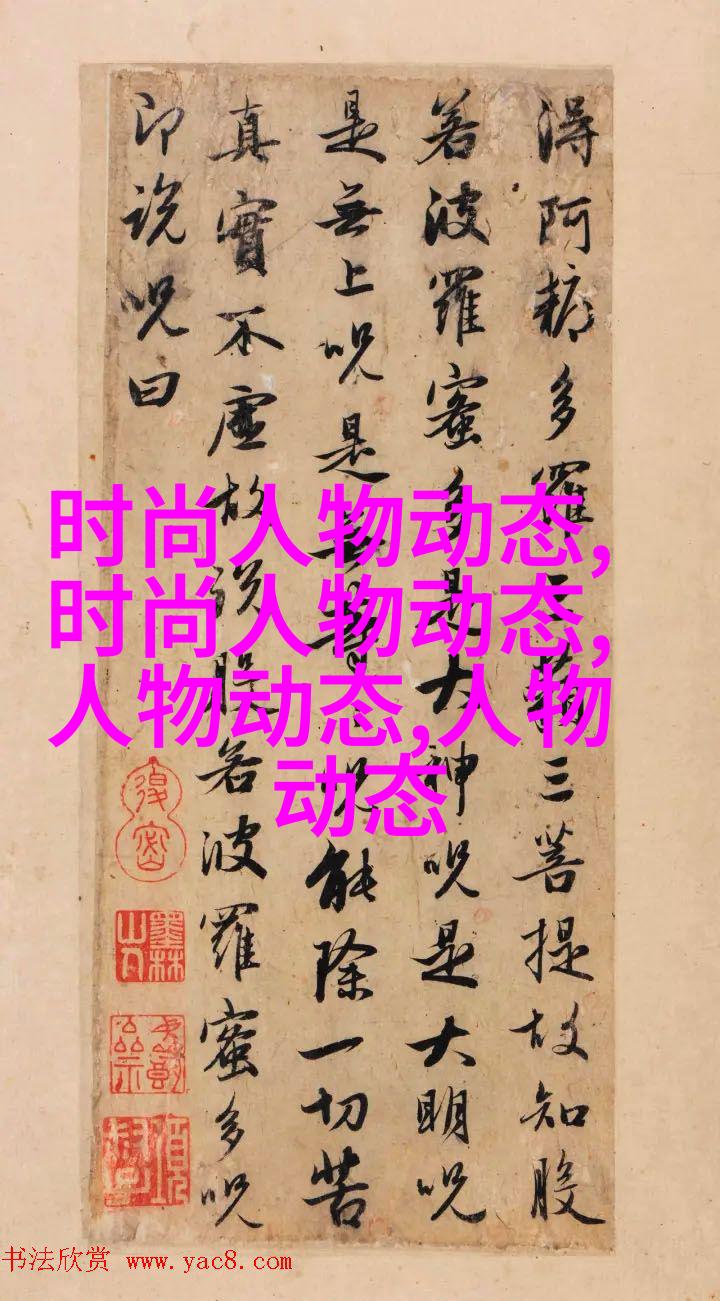 得阿耨多羅三藐三菩提故知般
若波羅蜜多是大神呪是大明呪
是無上呪是無等等呪能除一切苦
真實不虛故說般若波羅蜜多呪
即說呪曰
时尚人物动态,
时尚人物动态,
人物动态,人物
动态
墨林山人
书法欣赏 www.yac8.com